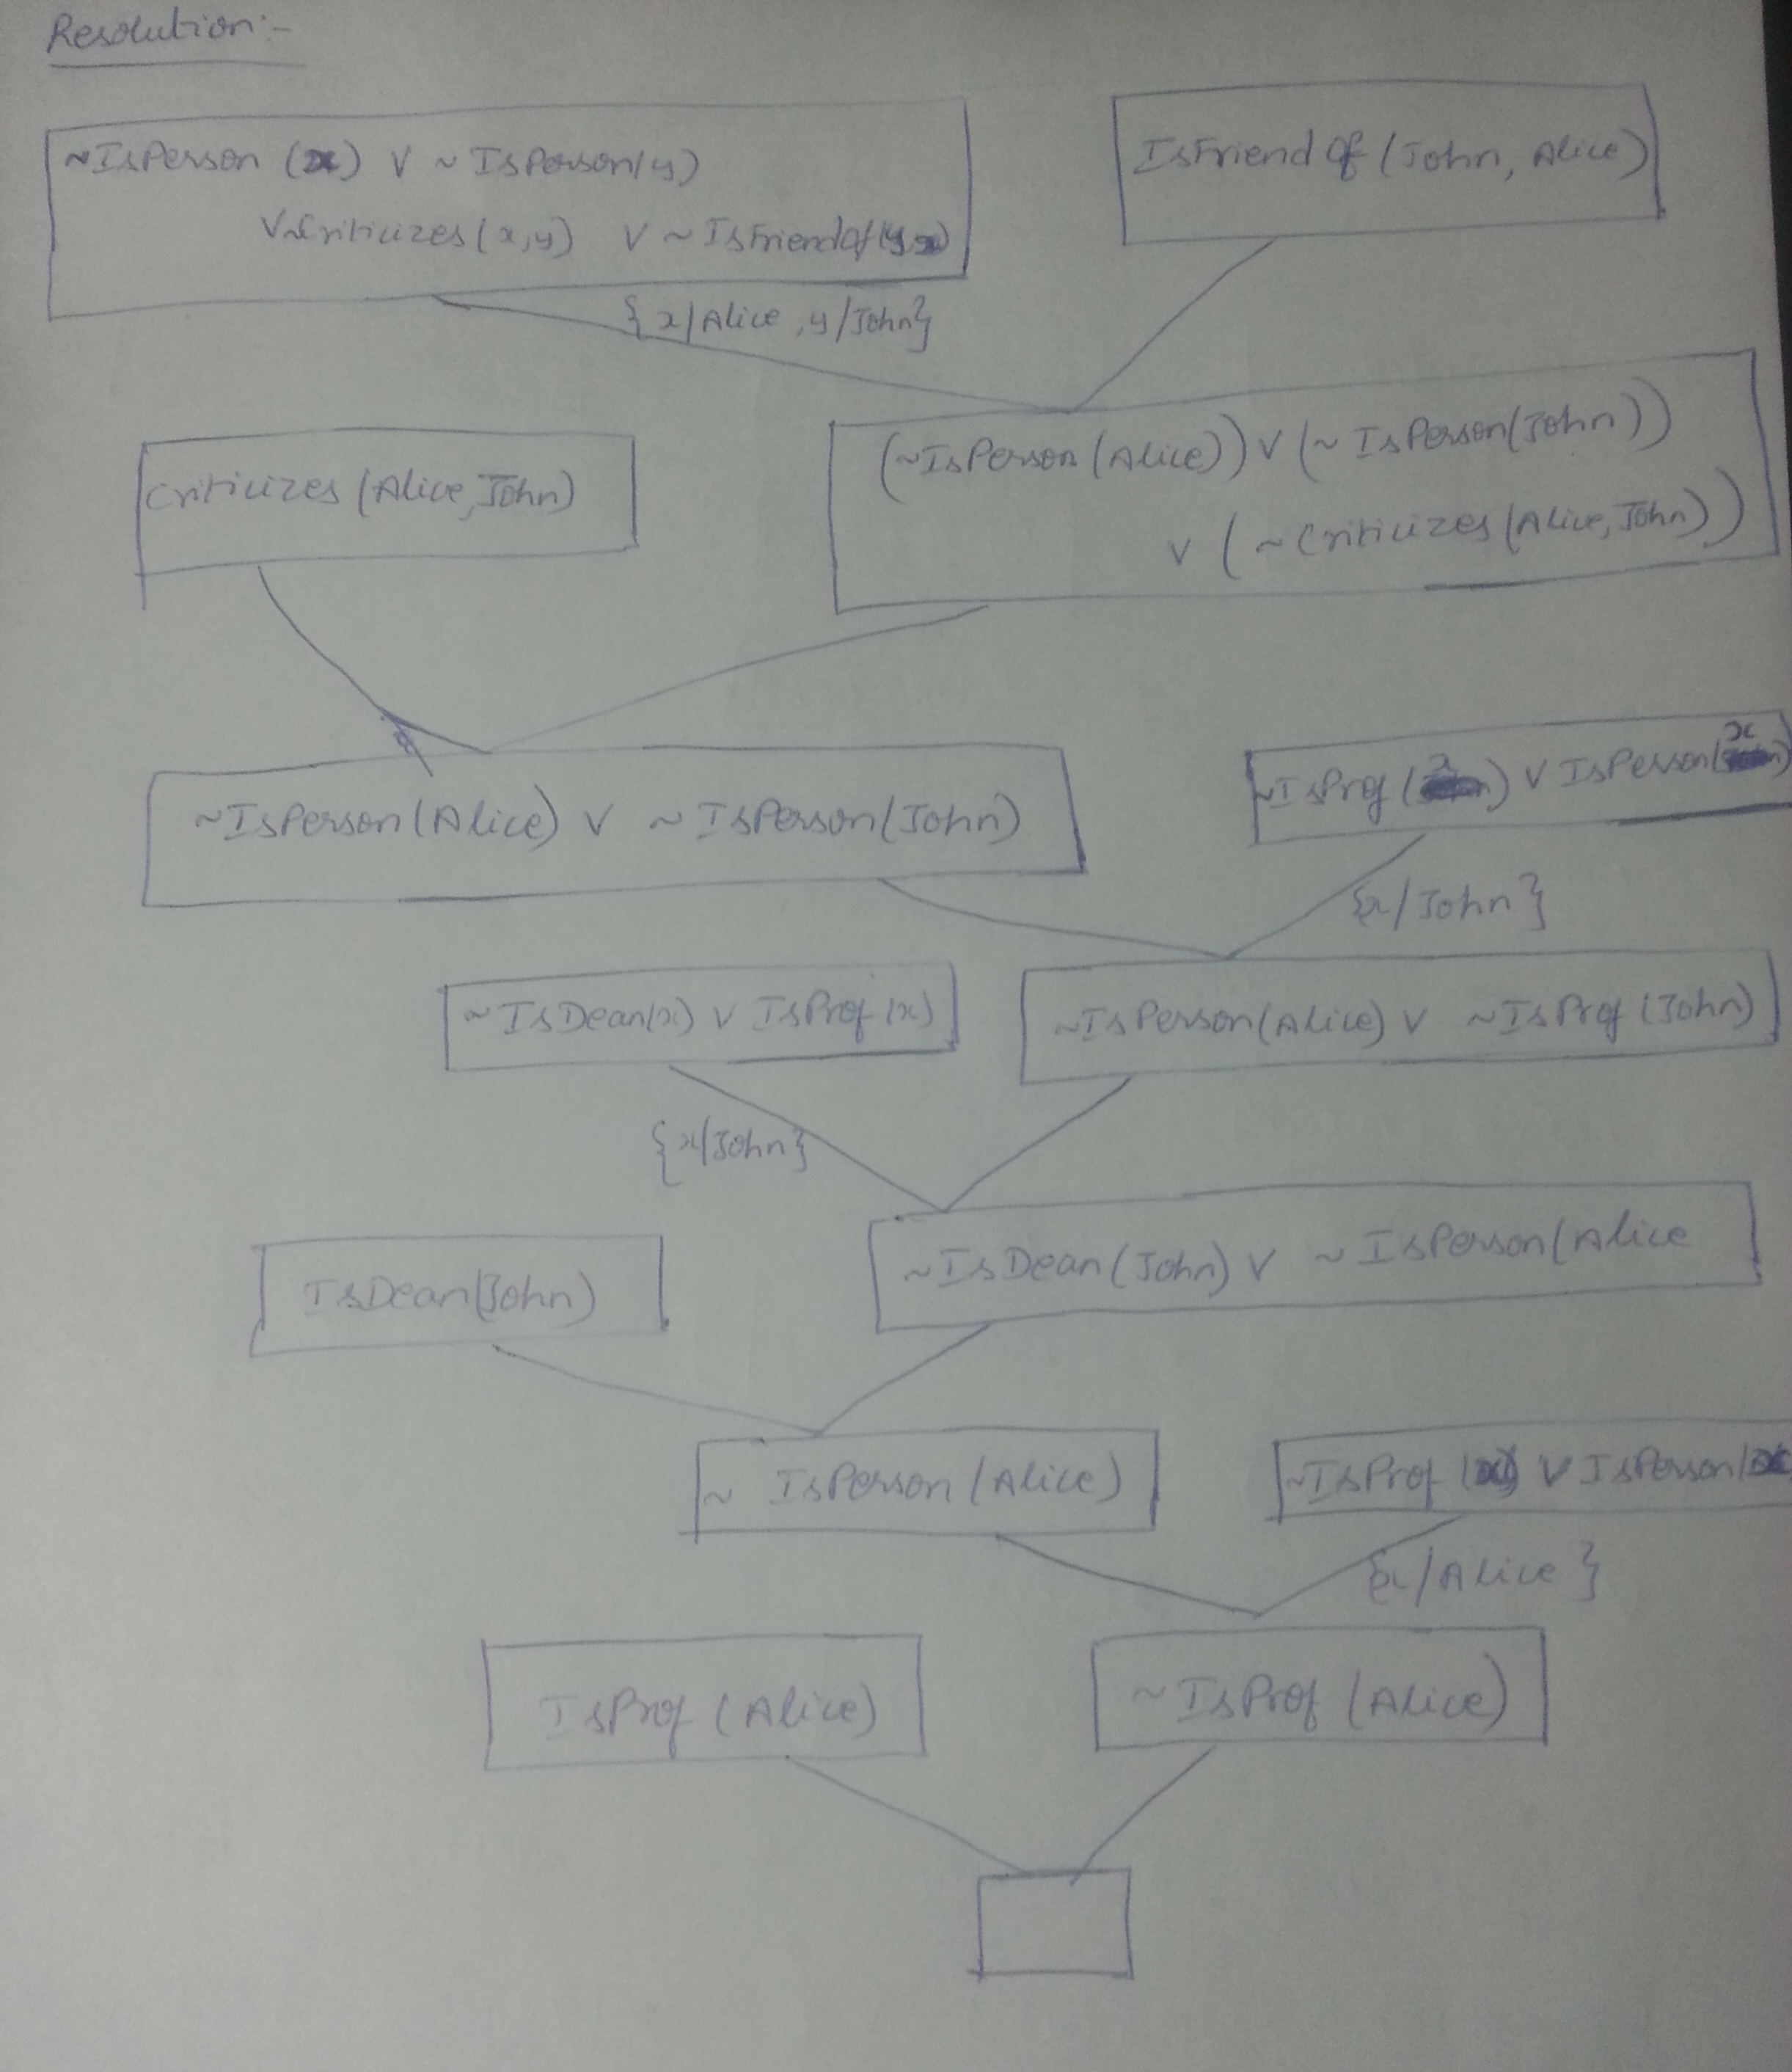 Resolution:-
~IsPerson (x) V ~ IsPerson(y)
V~Criticizes(x,y) V ~ IsFriendOf(y,x)
IsFriendOf (John, Alice)
{x/Alice, y/John}
Criticizes (Alice, John)
(~IsPerson (Alice)) V (~ IsPerson(John))
V (~Criticizes (Alice, John))
~IsPerson(Alice) V ~ IsPerson(John)
~IsProf (x) V IsPerson(x)
{x/John}
~IsDean(x) V IsProf(x)
~IsPerson(Alice) V ~IsProf (John)
{x/John}
IsDean(John)
~IsDean(John) V ~ IsPerson(Alice
~ IsPerson (Alice)
~IsProf (x) V IsPerson(x
{x/Alice}
IsProf (Alice)
~IsProf (Alice)